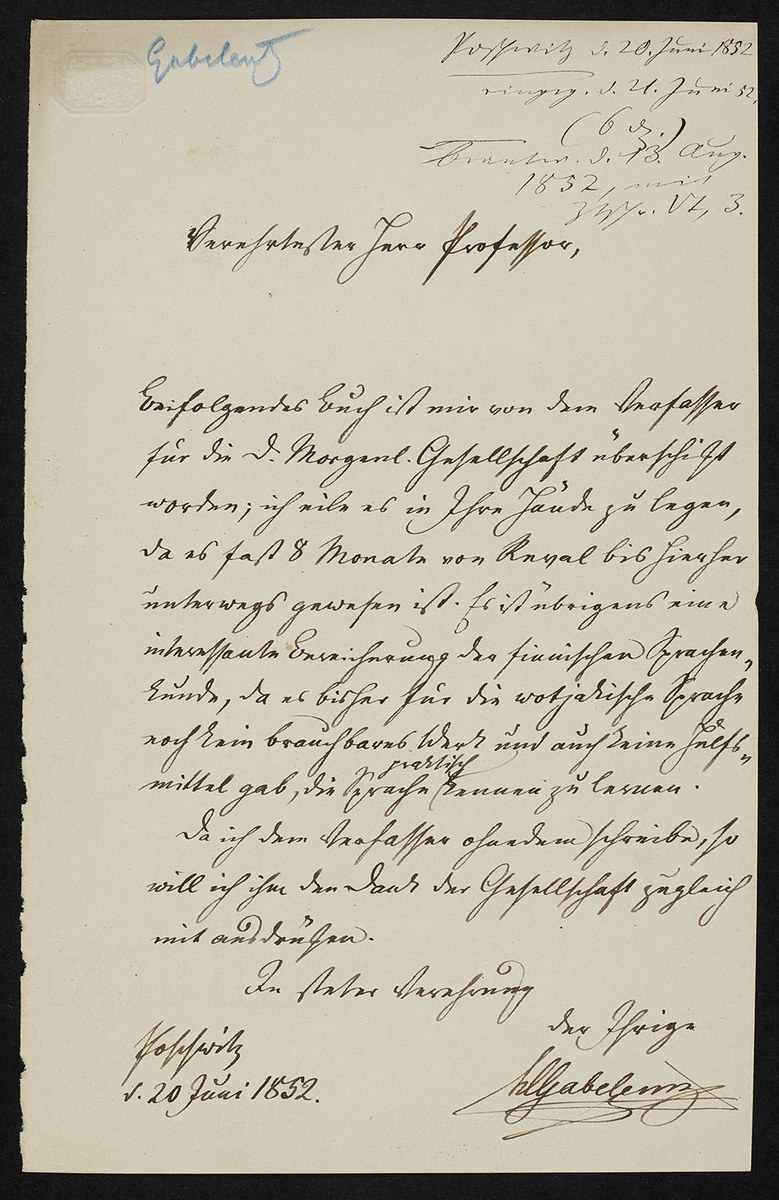 Gabelentz
Poschwitz d. 20. Juni 1852
eingeg. d. 21. Juni 52.
(6 d.)
Beantw. d. 13. Aug.
1852, mit
Ztschr. VI, 3.
Verehrtester Herr Professor,
Beifolgendes Buch ist mir von dem Verfasser
für die D. Morgenl. Gesellschaft überschickt
worden; ich eile es in Ihre Hände zu legen,
da es fast 8 Monate von Reval bis hierher
unterwegs gewesen ist. Es ist übrigens eine
interessante Bereicherung der finnischen Sprachen-
kunde, da es bisher für die wotjakische Sprache
noch kein brauchbares Werk und auch keine Hülfs-
mittel gab, die Sprache praktisch kennen zu lernen.
Da ich dem Verfasser ohnedem schreibe, so
will ich ihm den Dank der Gesellschaft zugleich
mit ausdrücken.
In steter Verehrung
der Ihrige
Poschwitz
d. 20 Juni 1852.
HCGabelentz